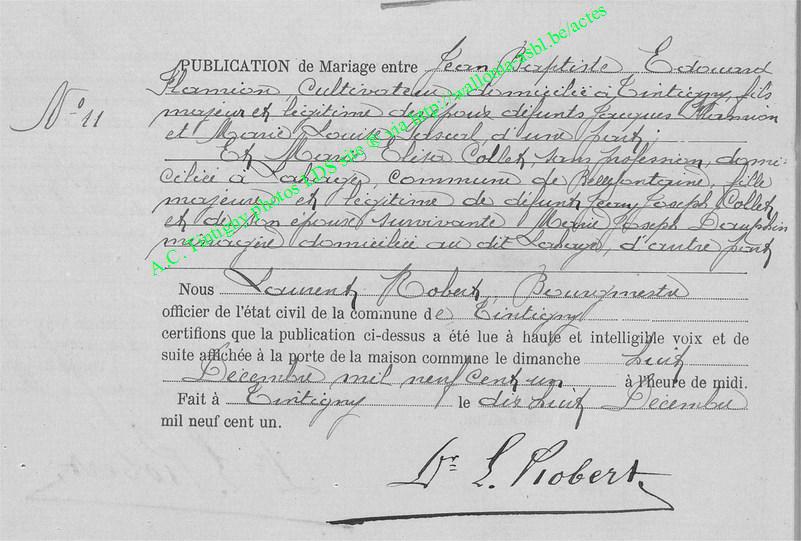 PUBLICATION de Mariage entre Jean Baptiste Edouard
Flamion cultivateur domicilié à Tintigny, fils
N° 11
majeur et légitime des époux défunts Jacques Flamion
et Marie Louise Pascal, d'une part;
Et Marie Elisa Collet sans profession, domi-
ciliée à Lahage, commune de Bellefontaine, fille
majeure et légitime de défunt Jean Joseph Collet
et de son épouse survivante Marie Joseph Dauphin
ménagère domiciliée au dit Lahage, d'autre part
Nous Laurent Robert, Bourgmestre
officier de l'état civil de la commune de Tintigny
certifions que la publication ci-dessus a été lue à haute et intelligible voix et de
suite affichée à la porte de la maison commune le dimanche huit
Décembre mil neuf cent un à l'heure de midi.
Fait à Tintigny le dix huit Décembre
mil neuf cent un.
Dr L. Robert
A.C. Tintigny photos LDS site ® via http://wallonia-asbl.be/actes